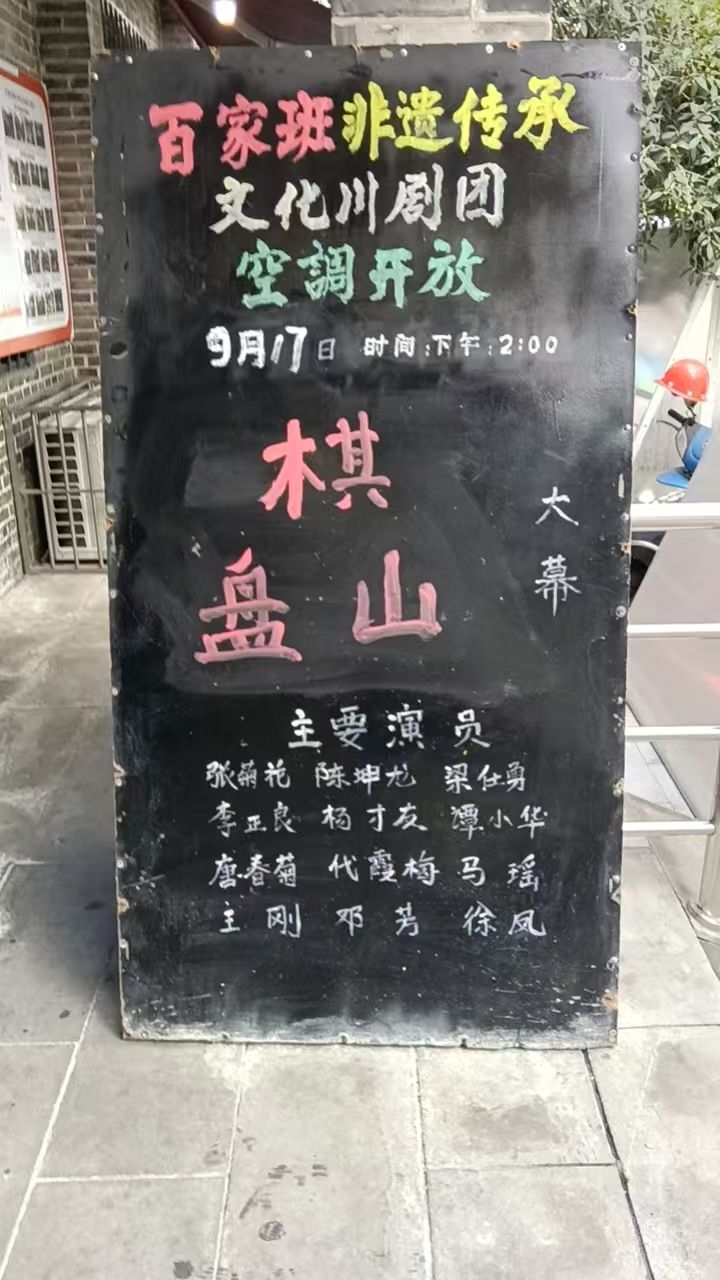 百家班非遗传承
文化川剧团
空調开放
9月17日 时间:下午:2:00
棋
盘山
大幕
主要演员
张菊花 陈坤龙 梁仕勇
李正良 杨才友 谭小华
唐春菊 代霞梅 马瑶
王刚 邓芳 徐凤